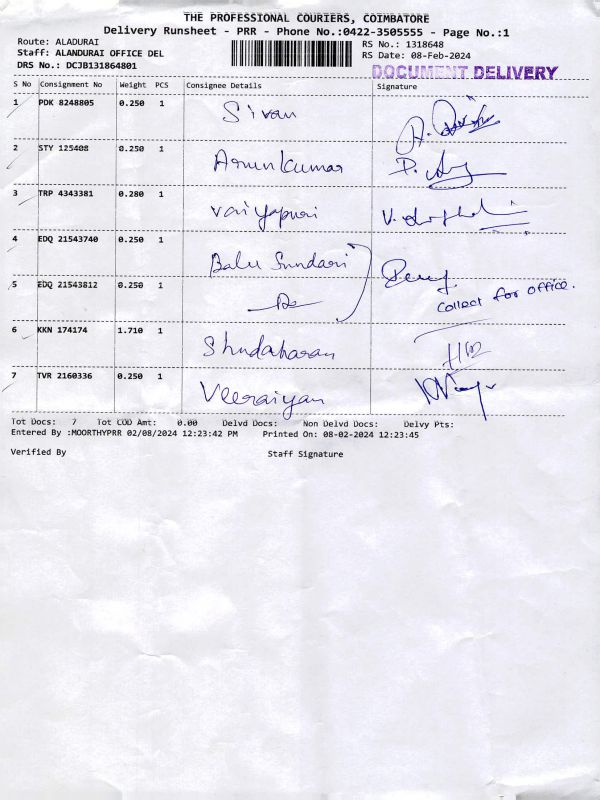 THE PROFESSIONAL COURIERS, COIMBATORE
Delivery Runsheet - PRR - Phone No.:0422-3505555 - Page No.:1
Route: ALADURAI
RS No.: 1318648
Staff: ALANDURAI OFFICE DEL
RS Date: 08-Feb-2024
DRS No.: DCJB131864801
DOCUMENT DELIVERY
S No Consignment No Weight PCS Consignee Details Signature
1 PDK 8248805 0.250 1 Sivan
2 STY 125408 0.250 1 Arunkumar
3 TRP 4343381 0.280 1 Vaiyapuri
4 EDQ 21543740 0.250 1 Balu Sundari
5 EDQ 21543812 0.250 1
collect for office.
6 KKN 174174 1.710 1 Shudaharan
7 TVR 2160336 0.250 1 Veeraiyan
Tot Docs: 7 Tot COD Amt: 0.00 Delvd Docs: Non Delvd Docs: Delvy Pts:
Entered By :MOORTHYPRR 02/08/2024 12:23:42 PM Printed On: 08-02-2024 12:23:45
Verified By Staff Signature